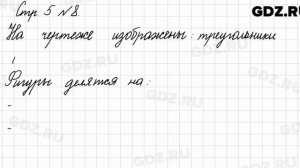 Стр. 5 №8.
GDZ.RU
На чертеже изображены: треугольники
,
Фигуры делятся на:
-
-